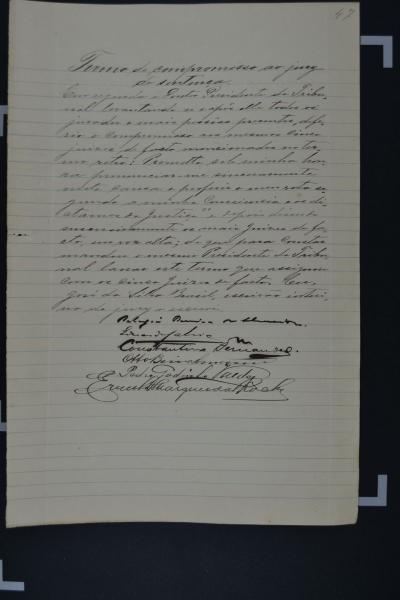 47
Termo de compromisso ao jury
de sentença.
Em seguida o Doutor Presidente do Tribu-
nal levantando-se e após elle todos os
jurados e mais pessoas presentes, defe-
rio o compromisso aos mesmos cinco
juizes de facto mencionados no ter-
mo retro: Prometto sob minha hon-
ra pronunciar-me sinceramente
nesta causa e proferir o meu voto se-
gundo a minha Consciencia e os di-
ctames da Justiça" e depois disseram
successivamente os mais Juizes de fa-
cto, em voz alta; do que para constar
mandou o mesmo Presidente do Tribu-
nal lavrar este termo que assignou
com os cinco Juizes de facto. Eu,
José da Silva Brasil, escrivão interi-
no do jury o escrevi
Constantino Fernandes.
Otto
Pedro Godinho
Ernesto Marques da Rocha